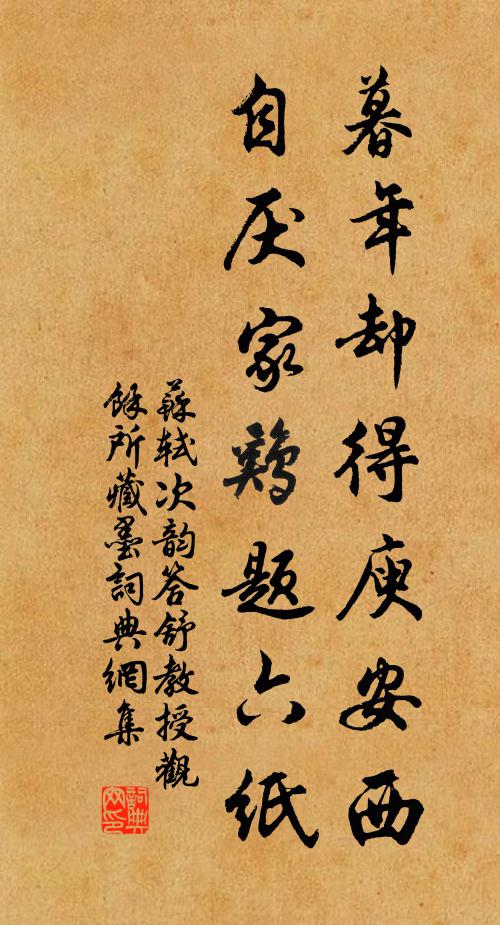 暮年却得庾安西
自厌家鷄题六纸
蘇軾次韵答舒教授觀
餘所藏墨詞典網集
詞典网印